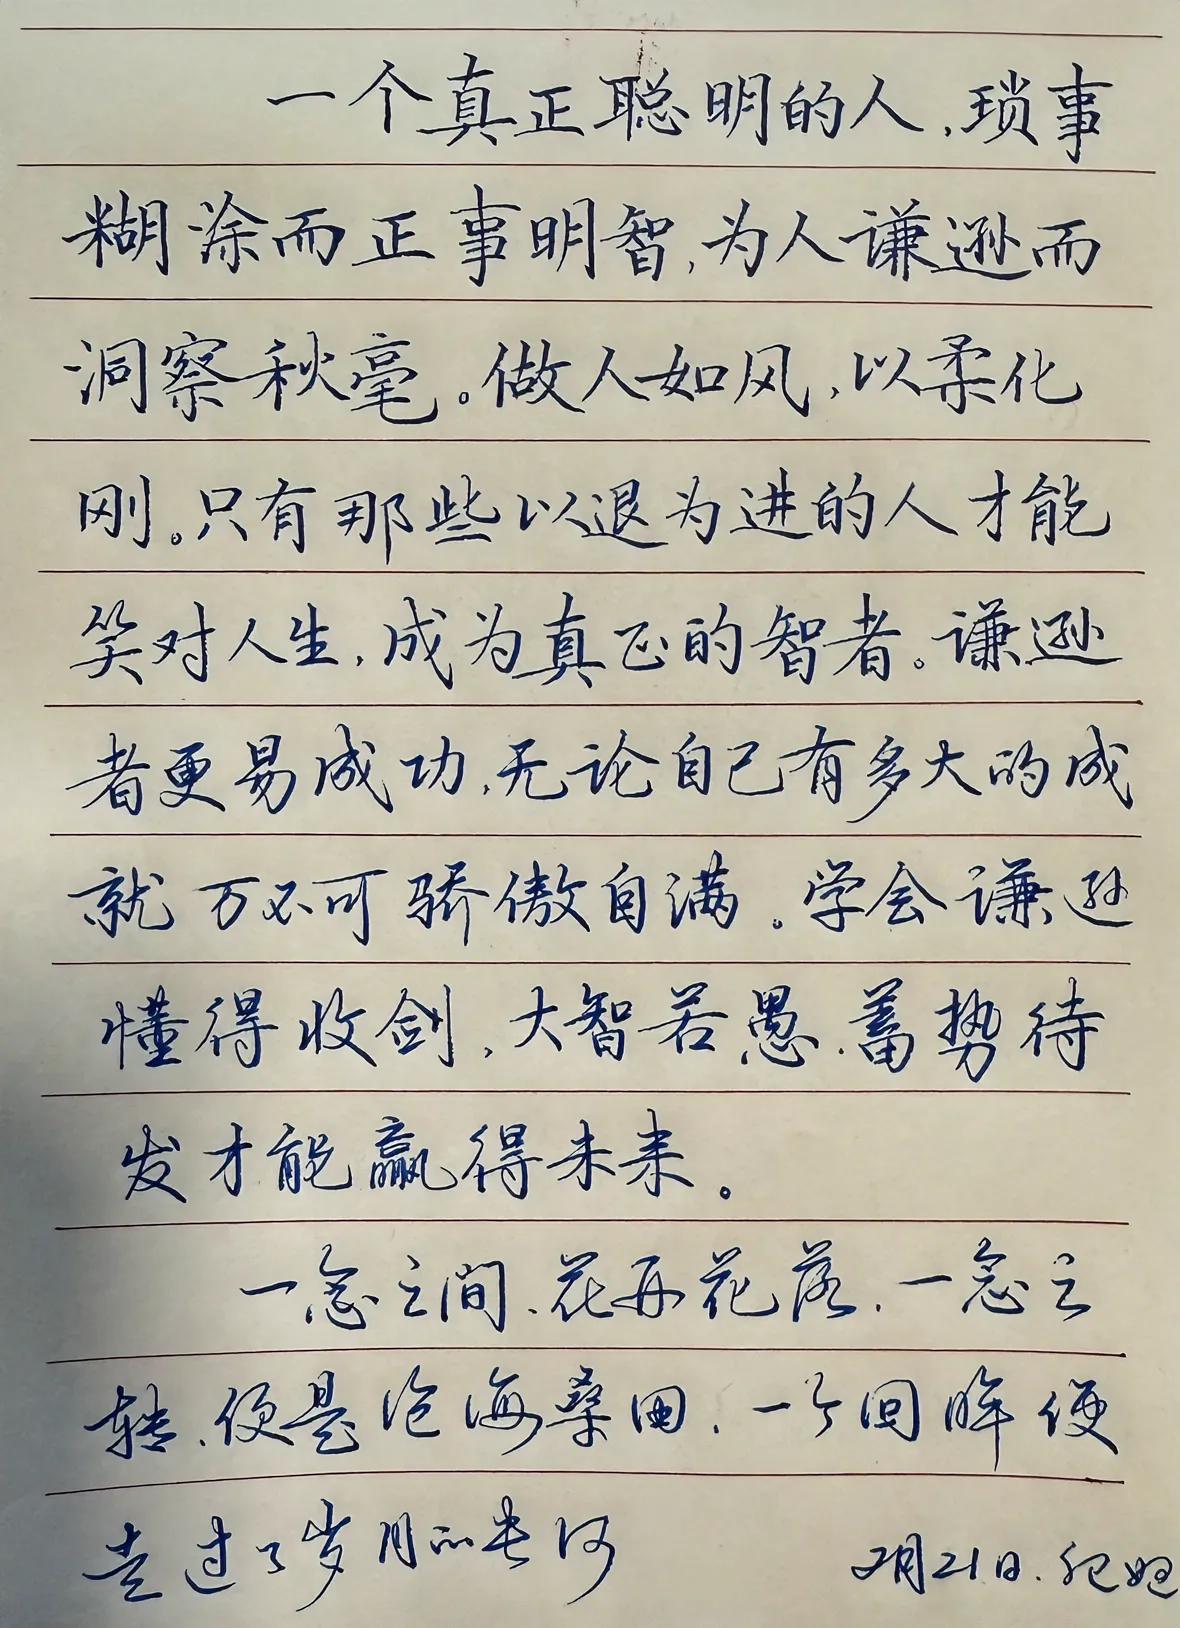 一个真正聪明的人,琐事
糊涂而正事明智,为人谦逊而
洞察秋毫。做人如风,以柔化
刚。只有那些以退为进的人才能
笑对人生,成为真正的智者。谦逊
者更易成功,无论自己有多大的成
就万不可骄傲自满。学会谦逊
懂得收剑,大智若愚.蓄势待
发才能赢得未来。
一念之间、花开花落,一念之
转、便是沧海桑田,一个回眸便
走过了岁月的长河
2月21日.